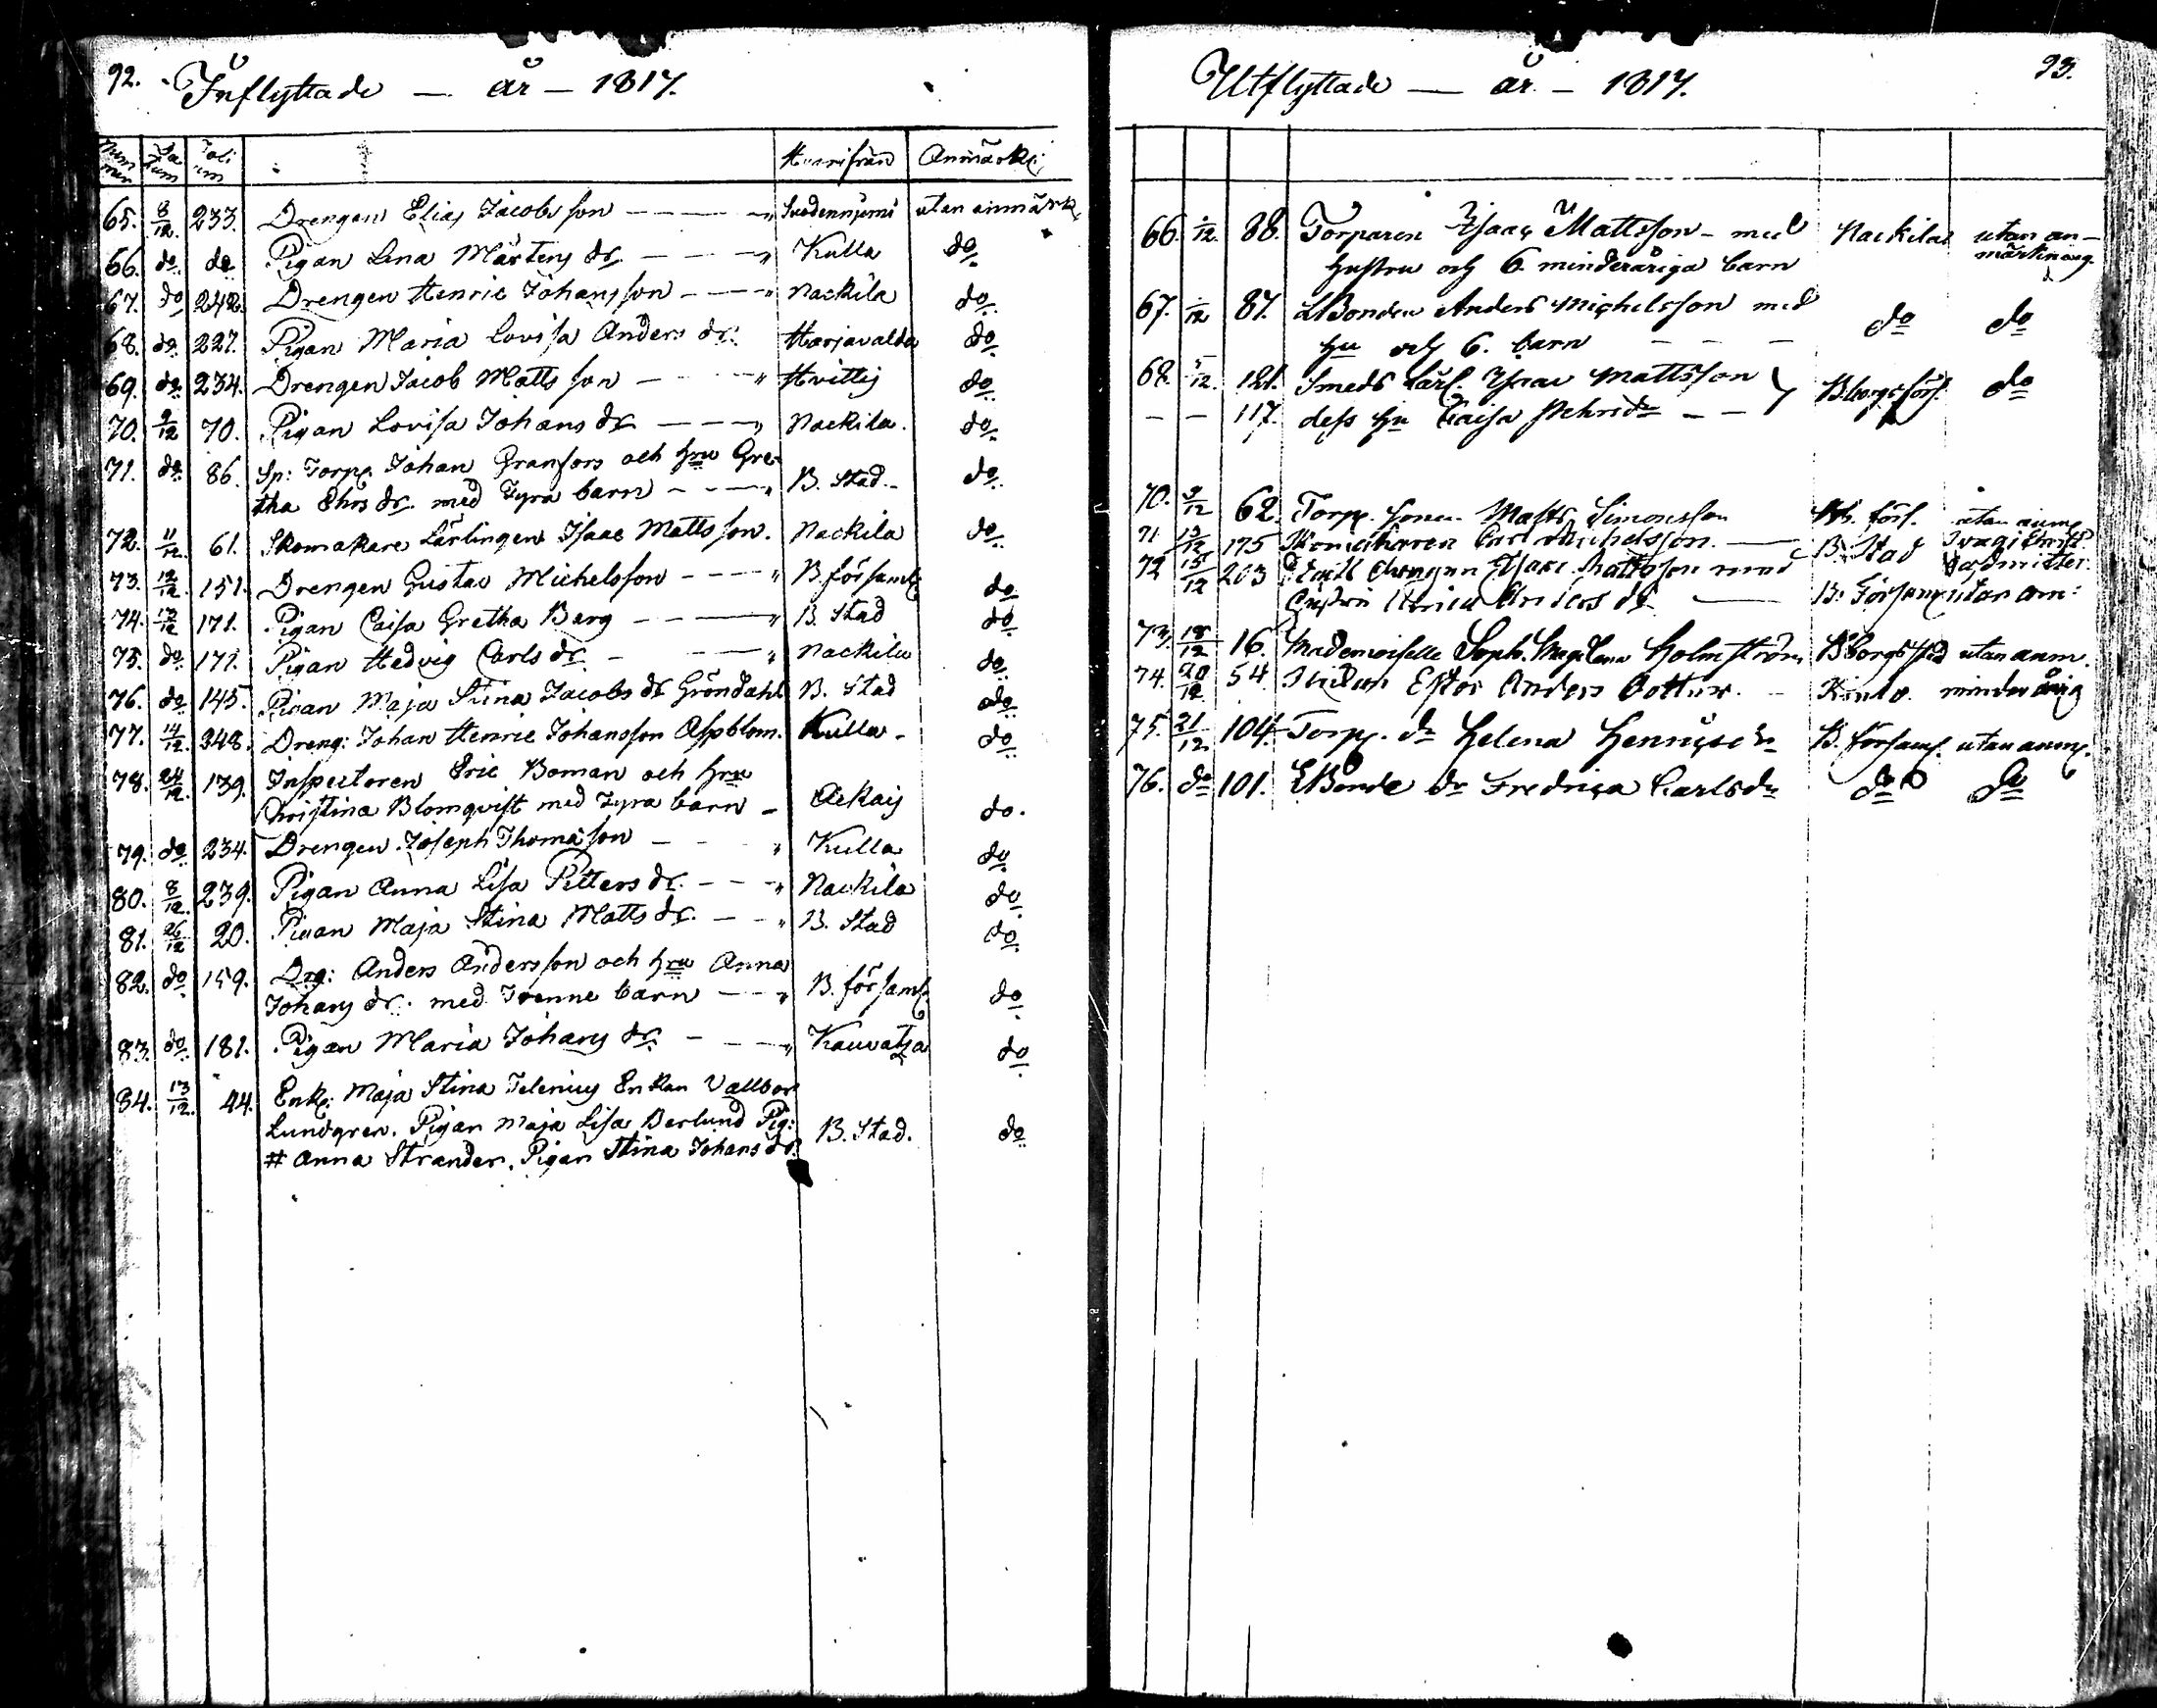 92. Inflyttade — år — 1817.
Num mer Da tum Foli um Hvarifrån Anmärkn:
65. 8/12. 233. Drengen Elias Jacobsson — — — " Suodennjemi utan anmärk.
66. do. do Pigan Lena Mårtens dr. — — — " Kulla do.
67. do 242. Drengen Henric Johansson — — — " Nackila do.
68. do. 227. Pigan Maria Lovisa Anders dr: Harjavalda do.
69. do. 234. Drengen Jacob Mattsson — — " Hvittis do.
70. 9/12 70. Pigan Lovisa Johans dr — — — " Nackila. do.
71. do. 86. Sp: Torp. Johan Granfors och hru Gre-
tha Ehrs dr. med fyra barn — — — " B. Stad.- do.
72. 11/12. 61. Skomakare Lärlingen Isaac Mattsson. Nackila do.
73. 12/12. 151. Drengen Gustav Michelsson — — — " B. församl. do
74. 13/12 171. Pigan Caisa Gretha Berg — — — " B. Stad do.
75. do. 171. Pigan Hedvig Carls dr — — — " Nackila do.
76. do 145. Pigan Maja Stina Jacobs dr Gröndahl B. Stad do
77. 14/12. 348. Dreng: Johan Henric Johansson Aspblom. Kulla - do.
78. 24/12. 139. Inspectoren Eric Boman och hru
Christina Blomqvist med fyra barn - Ackais do.
79. do. 234. Drengen Joseph Thomasson — — " Kulla do.
80. 8/12. 239. Pigan Anna Lisa Petters dr. — — " Nackila do
81. 26/12 20. Pigan Maja Stina Matts dr. — — " B. Stad do.
82. do. 159. Drg: Anders Andersson och hru Anna
Johans dr. med Tvenne barn — — " B. församl. do.
83. do. 181. Pigan Maria Johans dr. — — — " Kauvatsa do
84. 13/12. 44. Enk: Maja Stina Telenius Enkan Vallbor
Lundgren. Pigan Maja Lisa Berlund Pig:
# Anna Strander. Pigan Stina Johans dr. B. Stad. do
Utflyttade — år — 1817. 93.
66. /12. 88. Torparen Isaac Mattsson - med Nackila utan an-
hustru och 6. minderåriga barn märkning.
67. /12 87. LBonden Anders Michelsson med
hu och 6. barn — — — do do
68. /12. 121. Smeds Lärl. Isaac Mattsson B.borgs förs. do
— — 117. dess hu Caisa — —
70. 9/12 62. Torp. sonen Matts Simonsson förs. utan anm.
71 13/12 175 Carl Michelsson. — B. Stad
72 15/12 203 Isaac Mattsson med
hustru Anders dr — B. Församl utan anm:
73. 18/12 16. Mademoiselle Soph. Magdlena Holmström Bborgs Stad utan anm.
74. 20/12 54 Ester Anders Dotter. - minder årig
75. 21/12 104. Torp. dr Helena Henricsdr B. församl. utan anm.
76. do 101. LBonde dr Fredrica Carlsdr do do